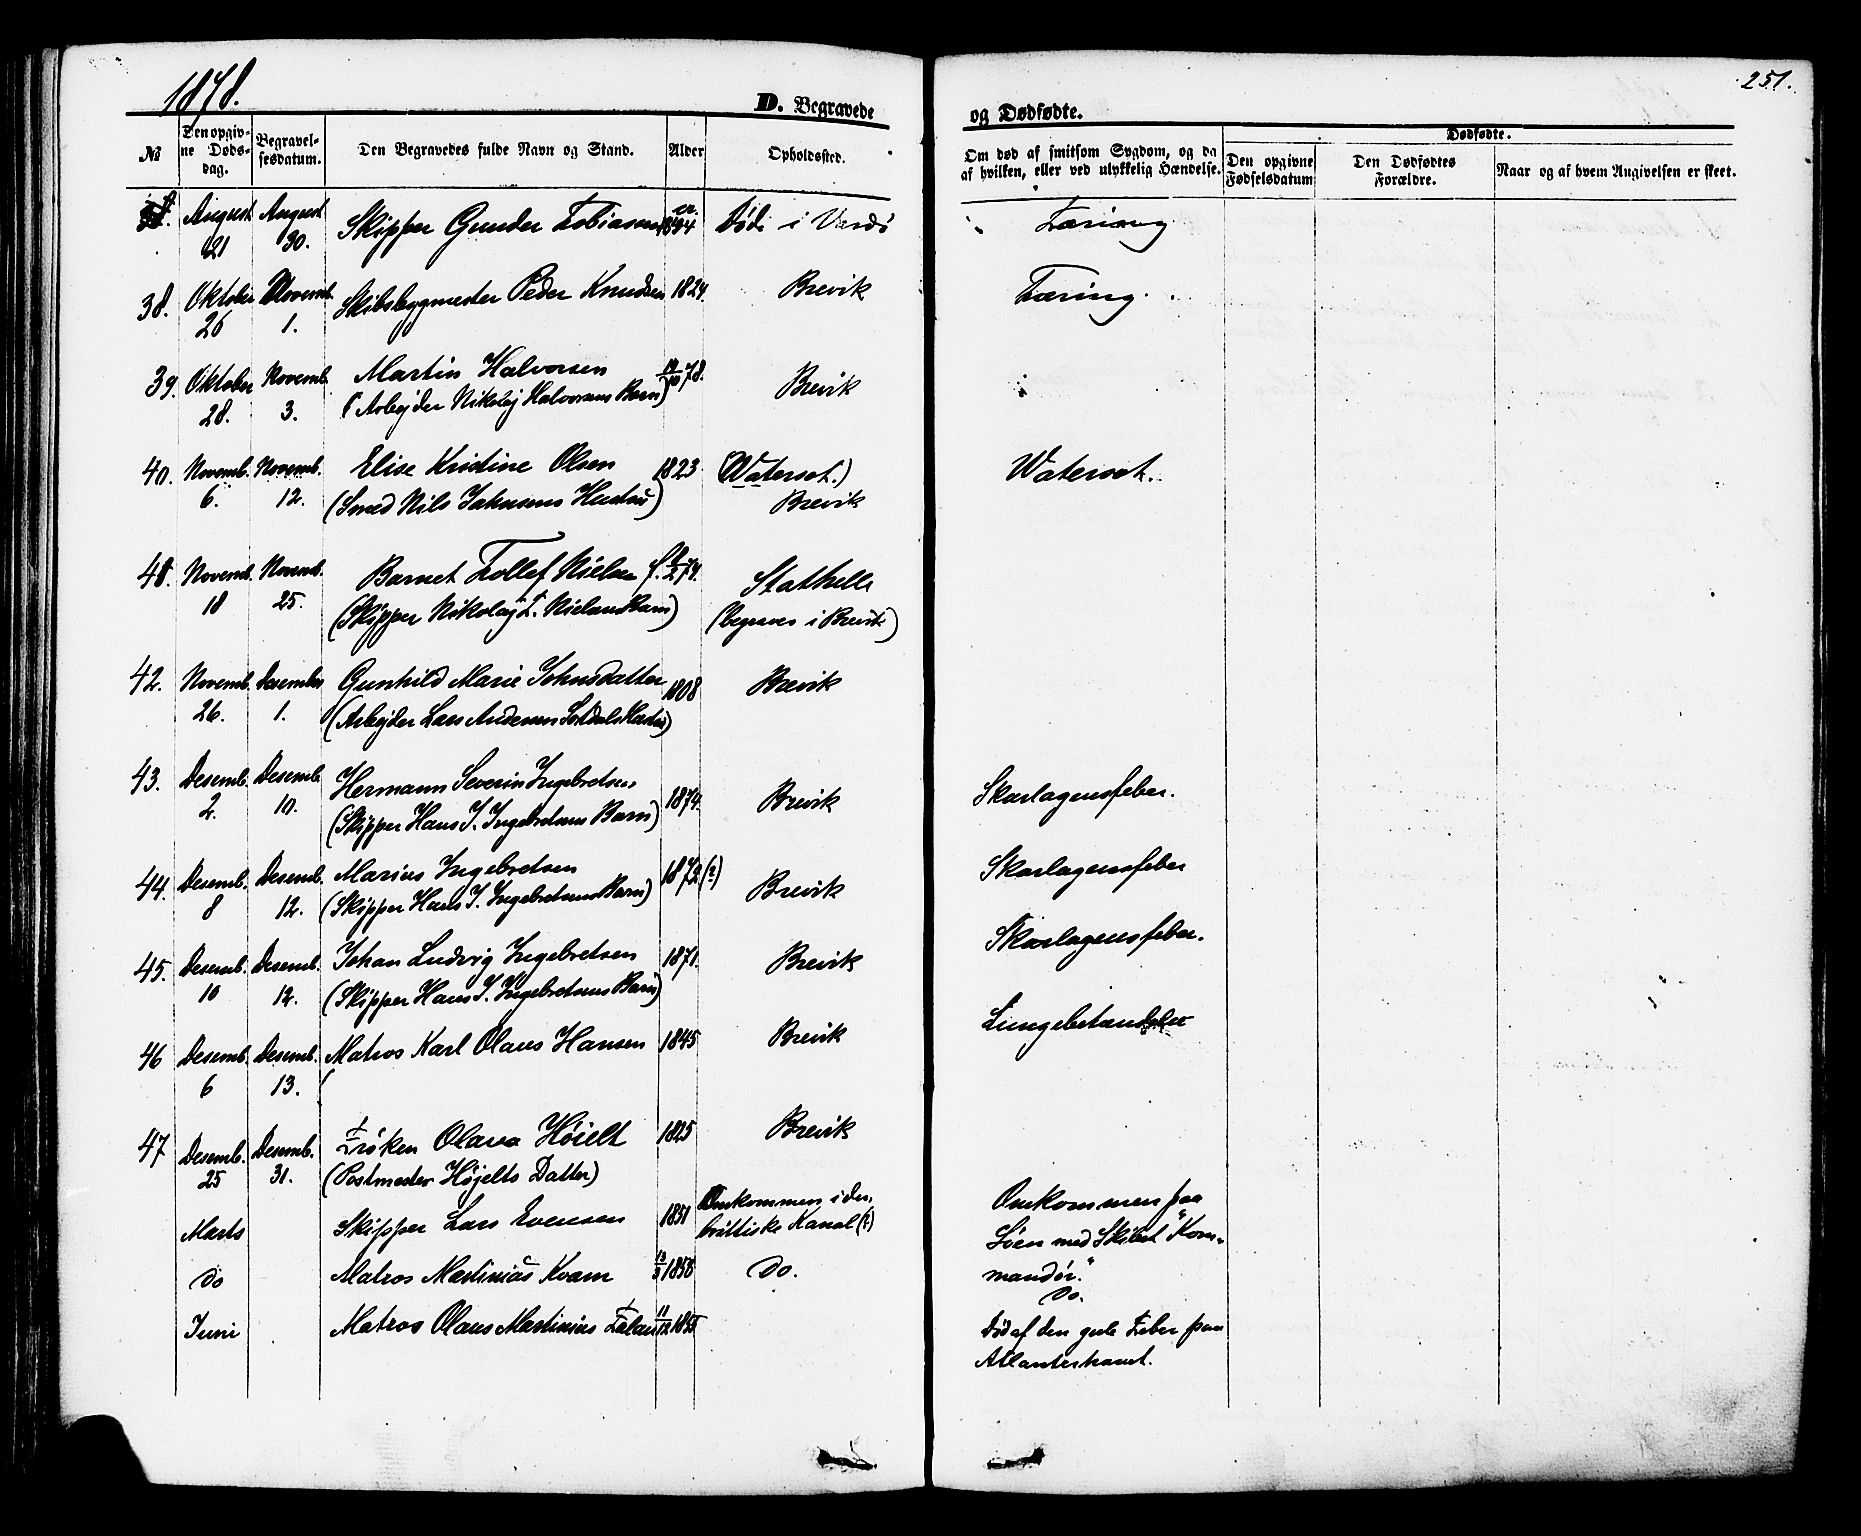 1878.
251.
D. Begravede
og Dødfødte.
№
Den opgiv-
ne Døds-
dag.
Begravel-
sesdatum.
Den Begravedes fulde Navn og Stand.
Alder
Opholdssted.
Om død af smitsom Sygdom, og da
af hvilken, eller ved ulykkelig Hændelse.
Dødfødte.
Den opgivne
Fødselsdatum
Den Dødfødtes
Forældre.
Naar og af hvem Angivelsen er skeet.
August August Skipper Gunder Tobiassen Død i Vardø Tæring
21 30.
38. Oktober Novemb. Skibsbygmester Peder Knudsen 1824. Brevik Tæring.
26 1.
39. Oktober Novemb. Martin Halvorsen 78. Brevik
28. 3. (Arbejder Nikolaj Halvorsens Barn)
40. Novemb. Novemb. Elise Kristine Olsen 1823. (Watersot.) Watersot.
6. 12. (Smed Nils Johnsens Hustru) Brevik
Novemb. Novemb. Barnet Tollef Nielsen f. Stathelle
18 25. (Skipper Nikolaj T. Nielsens Barn) (begraves i Brevik)
42. Novemb. Desember Gunhild Marie Johnsdatter 1808 Brevik
26. 1. (Arbejder Lars Andersen Hustru)
43. Desemb. Desemb. Hermann Severin Ingebretsen 1874. Brevik Skarlagensfeber.
2. 10. (Skipper Hans J. Ingebretsens Barn)
44. Desemb. Desemb. Marius Ingebretsen 1872(?) Brevik Skarlagensfeber
8 12. (Skipper Hans J. Ingebretsens Barn)
45. Desemb. Desemb. Johan Ludvig Ingebretsen 1871. Brevik Skarlagensfeber.
10 12. (Skipper Hans J. Ingebretsens Barn)
46 Desemb. Desemb. Matros Karl Olaus Hansen 1845 Brevik Lungebetændelse
6 13. (
47 Desemb. Desemb. Frøken Olava Höielt 1825 Brevik
25 31. (Postmester Højelts Datter)
Marts Skipper Lars Evensen 1851 Omkommen i den Omkommen paa
brittiske Kanal (?) Søen med Skibet "Kom-
mandör."
Do Matros Martinius Kvam 13/3 1858 Do. Do.
Juni Matros Olaus Martinius 11/12 1855 Död af den gule Feber paa
Atlanterhavet.